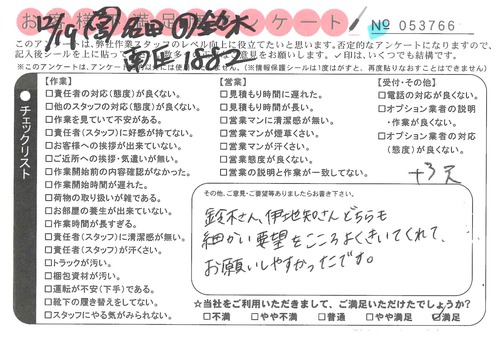 お客様満足度アンケート
№ 053766
12/19 ㊊ 名田 の 鈴木
南区 1882
このアンケートは、弊社作業スタッフのレベル向上に役立てたいと思います。否定的なアンケートになりますので、
記入後シールを上に貼って
意見をお願いします。レ印は、いくつでも結構です。
チェックリスト
【作業】
□責任者の対応(態度)が良くない。
□他のスタッフの対応(態度)が良くない。
□作業を見ていて不安がある。
□責任者(スタッフ)に好感が持てない。
□お客様への挨拶が出来ていない。
□ご近所への挨拶・気遣いが無い。
□作業開始前の内容確認がなかった。
□作業開始時間が遅れた。
□荷物の取り扱いが雑である。
□お部屋の養生が出来ていない。
□作業時間が長すぎる。
□責任者(スタッフ)に清潔感が無い。
□責任者(スタッフ)が汗くさい。
□トラックが汚い。
□梱包資材が汚い。
□運転が不安(下手)である。
□靴下の履き替えをしてない。
□スタッフにやる気がみられない。
【営業】
□見積もり時間に遅れた。
□見積もり時間が長い。
□営業マンに清潔感が無い。
□営業マンが煙草くさい。
□営業マンが汗くさい。
□営業態度が良くない。
□営業の説明と作業が一致してない。
【受付・その他】
□電話の対応が良くない。
□オプション業者の説明
・作業が良くない。
□オプション業者の対応
(態度)が良くない。
+3天
その他、ご意見・ご要望等ありましたらお書き下さい。
鈴木さん、伊地知さんどちらも
細かい要望をこころよくきいてくれて、
お願いしやすかったです。
☆当社をご利用いただきまして、ご満足いただけたでしょうか?
□不満 □やや不満 □普通 □やや満足 ☑満足